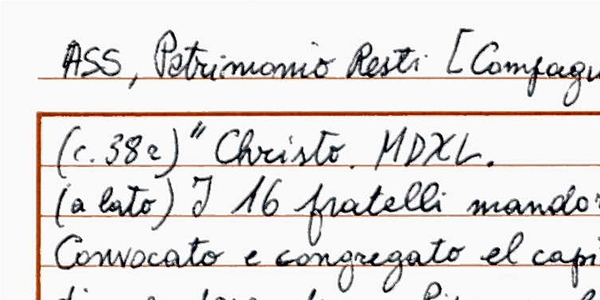 ASS, Patrimonio Resti [Compagn
(c. 38r) "Christo. MDXL.
(a lato) I 16 fratelli mando
Convocato e congregato el capi